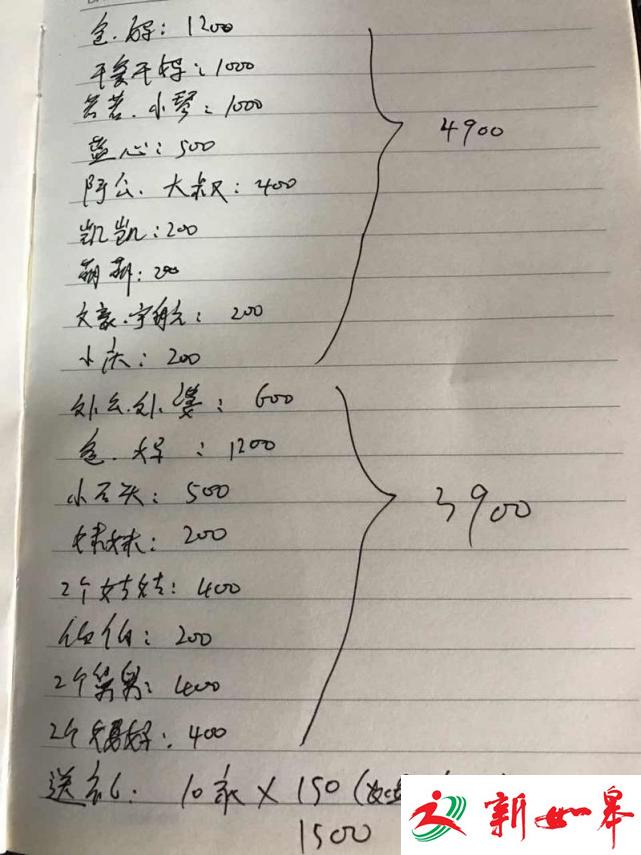 爸.妈：1200
干爹干妈：1000
小琴：1000
蓝心：500
阿公.大叔：400
凯凯：200
萌萌：200
文豪.宇航：200
小庆：200
4900
外公.外婆：600
爸.妈：1200
小石头：500
妹妹：200
2个姑姑：400
伯伯：200
2个舅舅：400
2个舅妈：400
3900
送礼：10家×150(
1500
新如皋